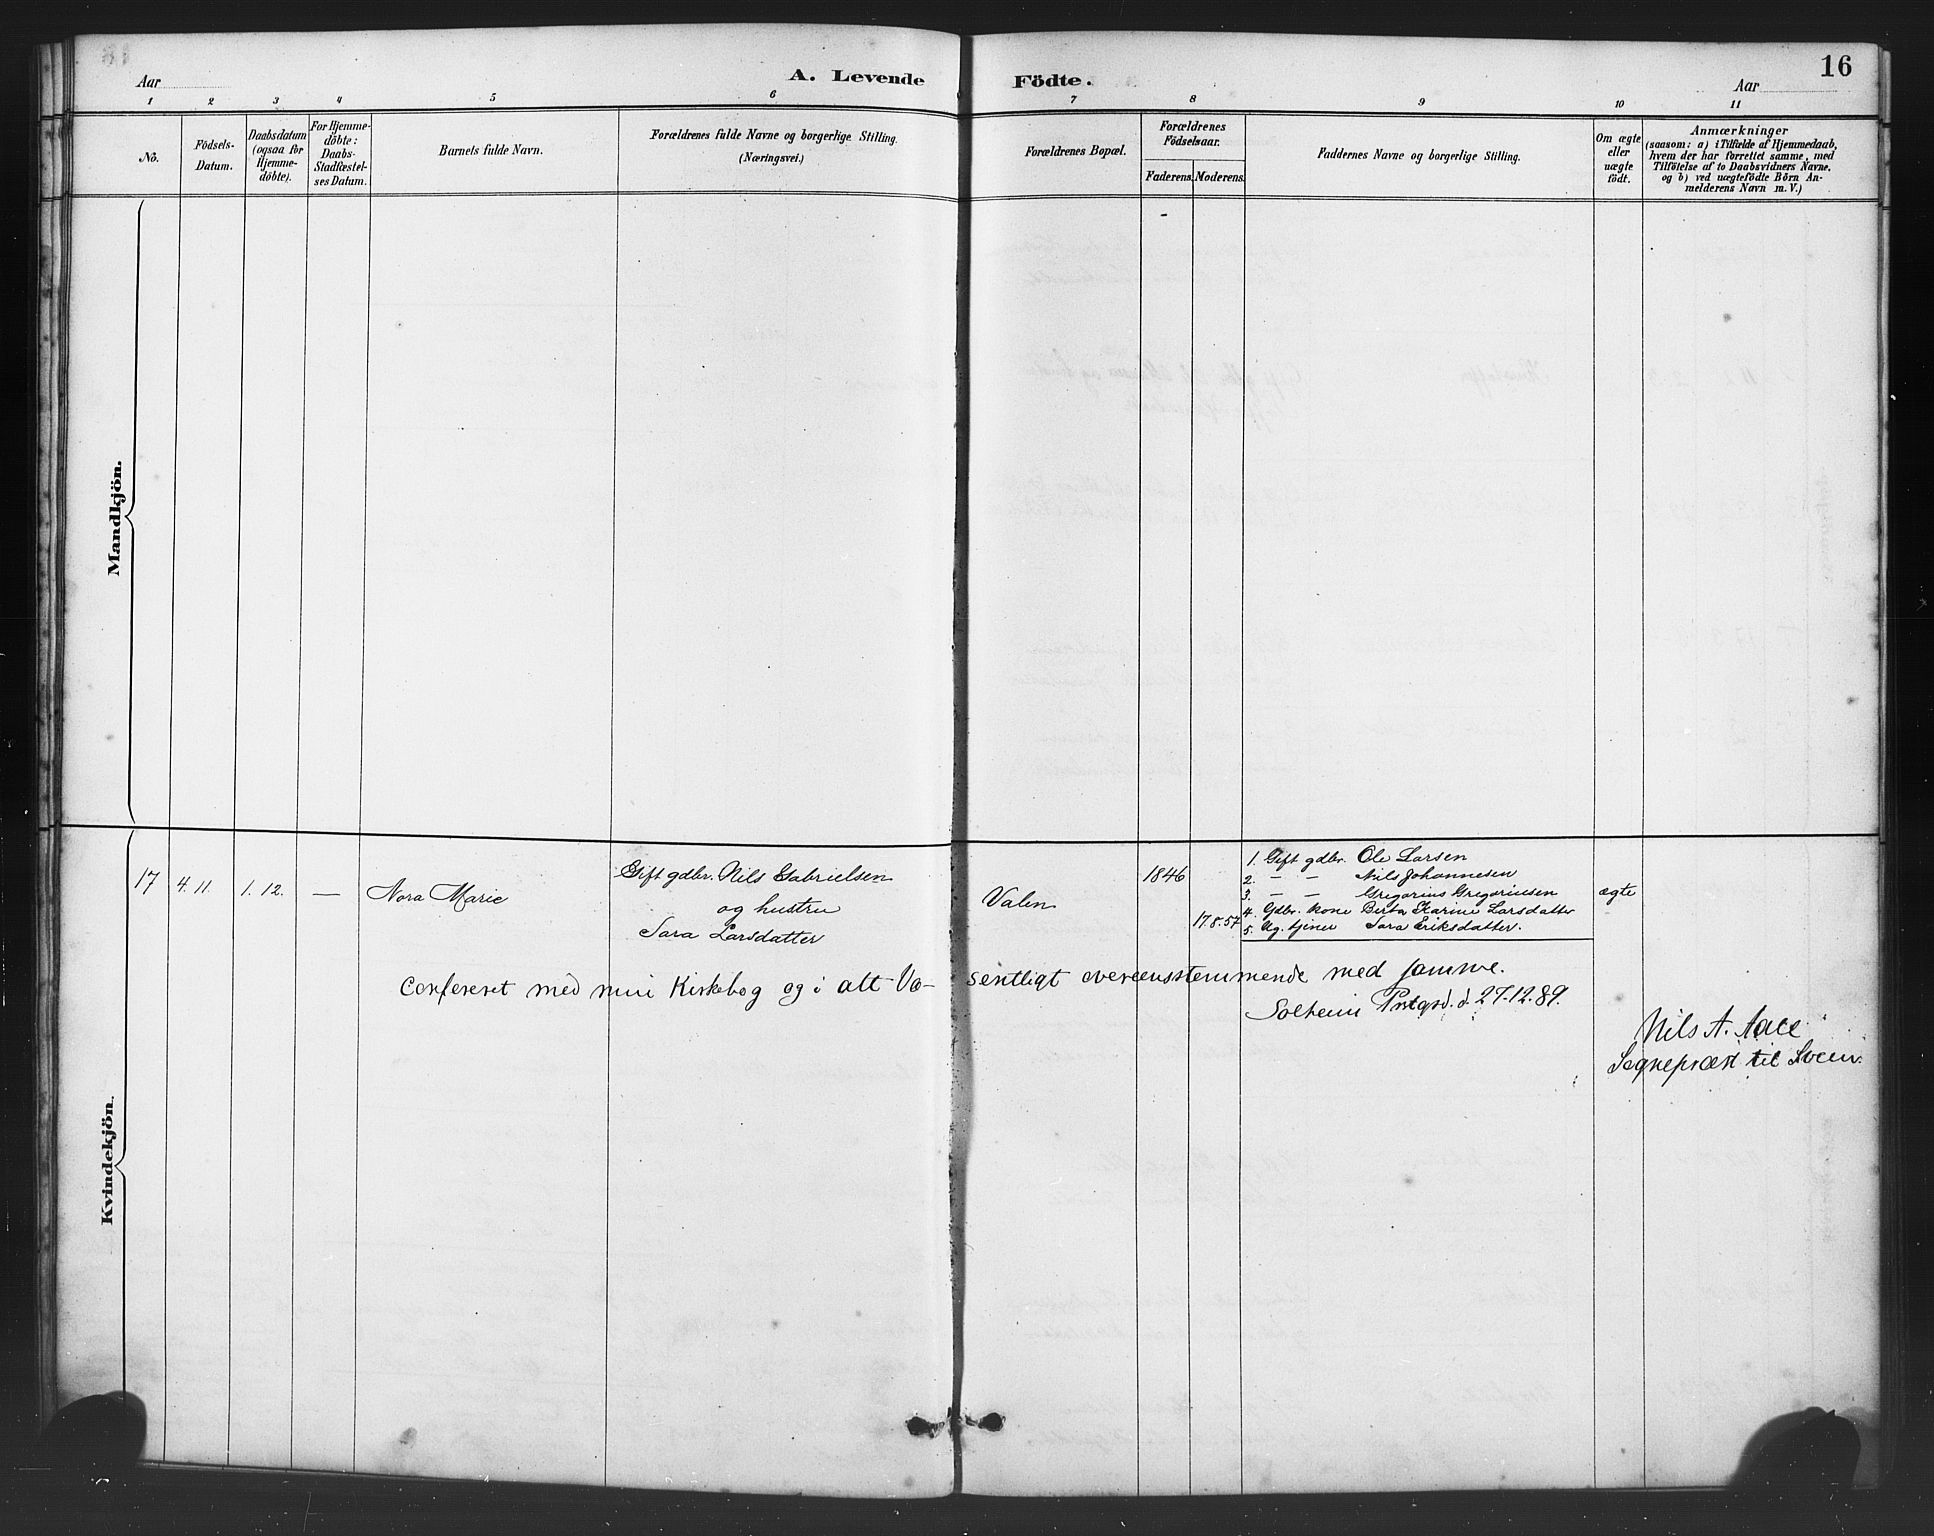 16
Aar
A. Levende Födte.
Aar
1 2 3 4 5 6 7 8 9 10 11
No.
Födsels-
Datum.
Daabsdatum
(ogsaa for
Hjemme-
döbte).
For Hjemme-
döbte:
Daabs-
Stadfæstel-
ses Datum.
Barnets fulde Navn.
Forældrenes fulde Navne og borgerlige Stilling.
(Næringsvei.)
Forældrenes Bopæl.
Forældrenes
Födselsaar.
Faderens. Moderens.
Faddernes Navne og borgerlige Stilling.
Om ægte
eller
uægte
födt.
Anmærkninger
(saasom: a) i Tilfælde af Hjemmedaab,
hvem der har forrettet samme, med
Tilföielse af to Daabsvidners Navne.
og b) ved uægtefödte Börn An-
melderens Navn m. V.)
Mandkjön.
Kvindekjön.
17
4. 11.
1. 12.
—
Nora Marie
Gift gdbr. Nils Gabrielsen
og hustru
Sara Larsdatter
Valen
1846
17.8.57
1. Gift gdbr. Ole Larsen
2. — — Nils Johannesen
3. — — Gregorius Gregoriusen
4. Gdbr. kone Berta Karine Larsdatter
5. Ug. tjener Sara Eriksdatter.
ægte
Confereret med min Kirkebog og i alt Væ- sentligt overensstemmende med samme.
Solheim Prstgrd. d. 27.12.89.
Nils A. Aace
Sognepræst til Sveen.